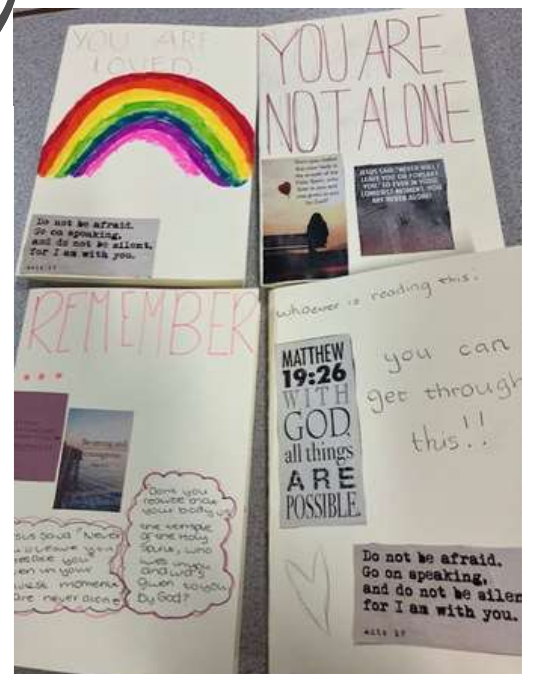 YOU ARE
LOVED
Do not be afraid.
Go on speaking,
and do not be silent,
for I am with you.
acts 17
YOU ARE
NOT ALONE
JESUS SAID "NEVER WILL I
LEAVE YOU OR FORSAKE
YOU" SO EVEN IN YOUR
LONELIEST MOMENT, YOU
ARE NEVER ALONE!
REMEMBER
...
Be strong and
courageous
sus said "Never
leave you
you"
en in your
moment
are never alone
Dont you
realize that
your body is
the temple
of the Holy
Spirit, who
lives in you
and was
given to you
by God?
whoever is reading this.
MATTHEW
19:26
WITH
GOD
all things
ARE
POSSIBLE.
you can
get through
this!!
Do not be afraid.
Go on speaking,
and do not be silen
for I am with you.
acts 17